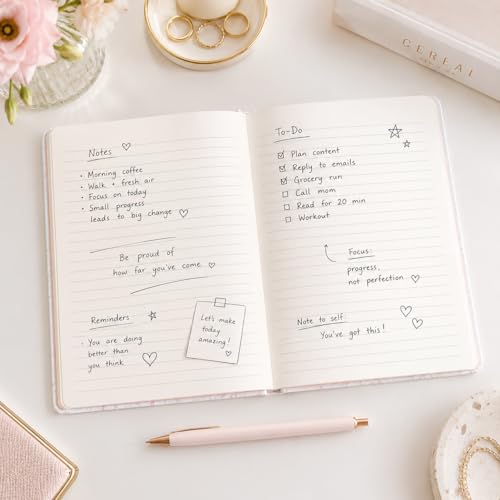 Notes
• Morning coffee
• Walk + fresh air
• Focus on today
• Small progress
leads to big change
Be proud of
how far you've come
Reminders
• You are doing
better than
you think
Let's make
today
amazing!
To-Do
Plan content
Reply to emails
Grocery run
Call mom
Read for 20 min
Workout
Focus:
progress,
not perfection
Note to self
You've got this!
CEREAL